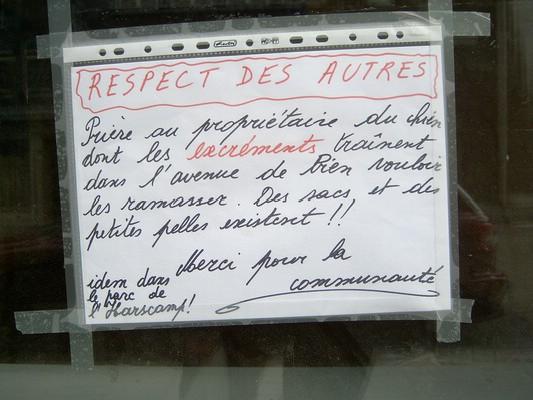 RESPECT DES AUTRES
Prière au propriétaire du chien
dont les excréments traînent
dans l'avenue de bien vouloir
les ramasser. Des sacs et des
petites pelles existent !!
Merci pour la
communauté
idem dans
le parc de
l'Harscamp!